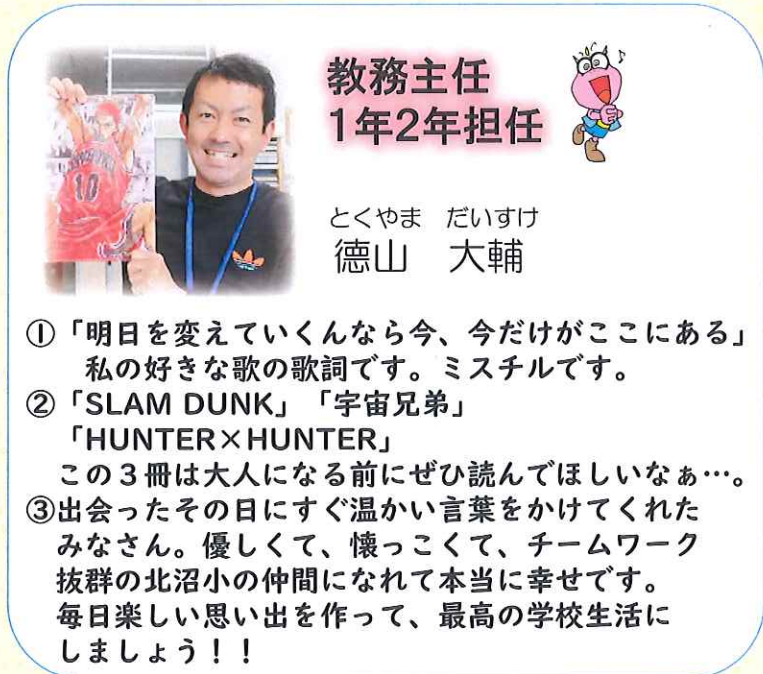 教務主任
1年2年担任
とくやま だいすけ
德山 大輔
①「明日を変えていくんなら今、今だけがここにある」
私の好きな歌の歌詞です。ミスチルです。
②「SLAM DUNK」「宇宙兄弟」
「HUNTER×HUNTER」
この3冊は大人になる前にぜひ読んでほしいなぁ…。
③出会ったその日にすぐ温かい言葉をかけてくれた
みなさん。優しくて、懐っこくて、チームワーク
抜群の北沼小の仲間になれて本当に幸せです。
毎日楽しい思い出を作って、最高の学校生活に
しましょう！！
10